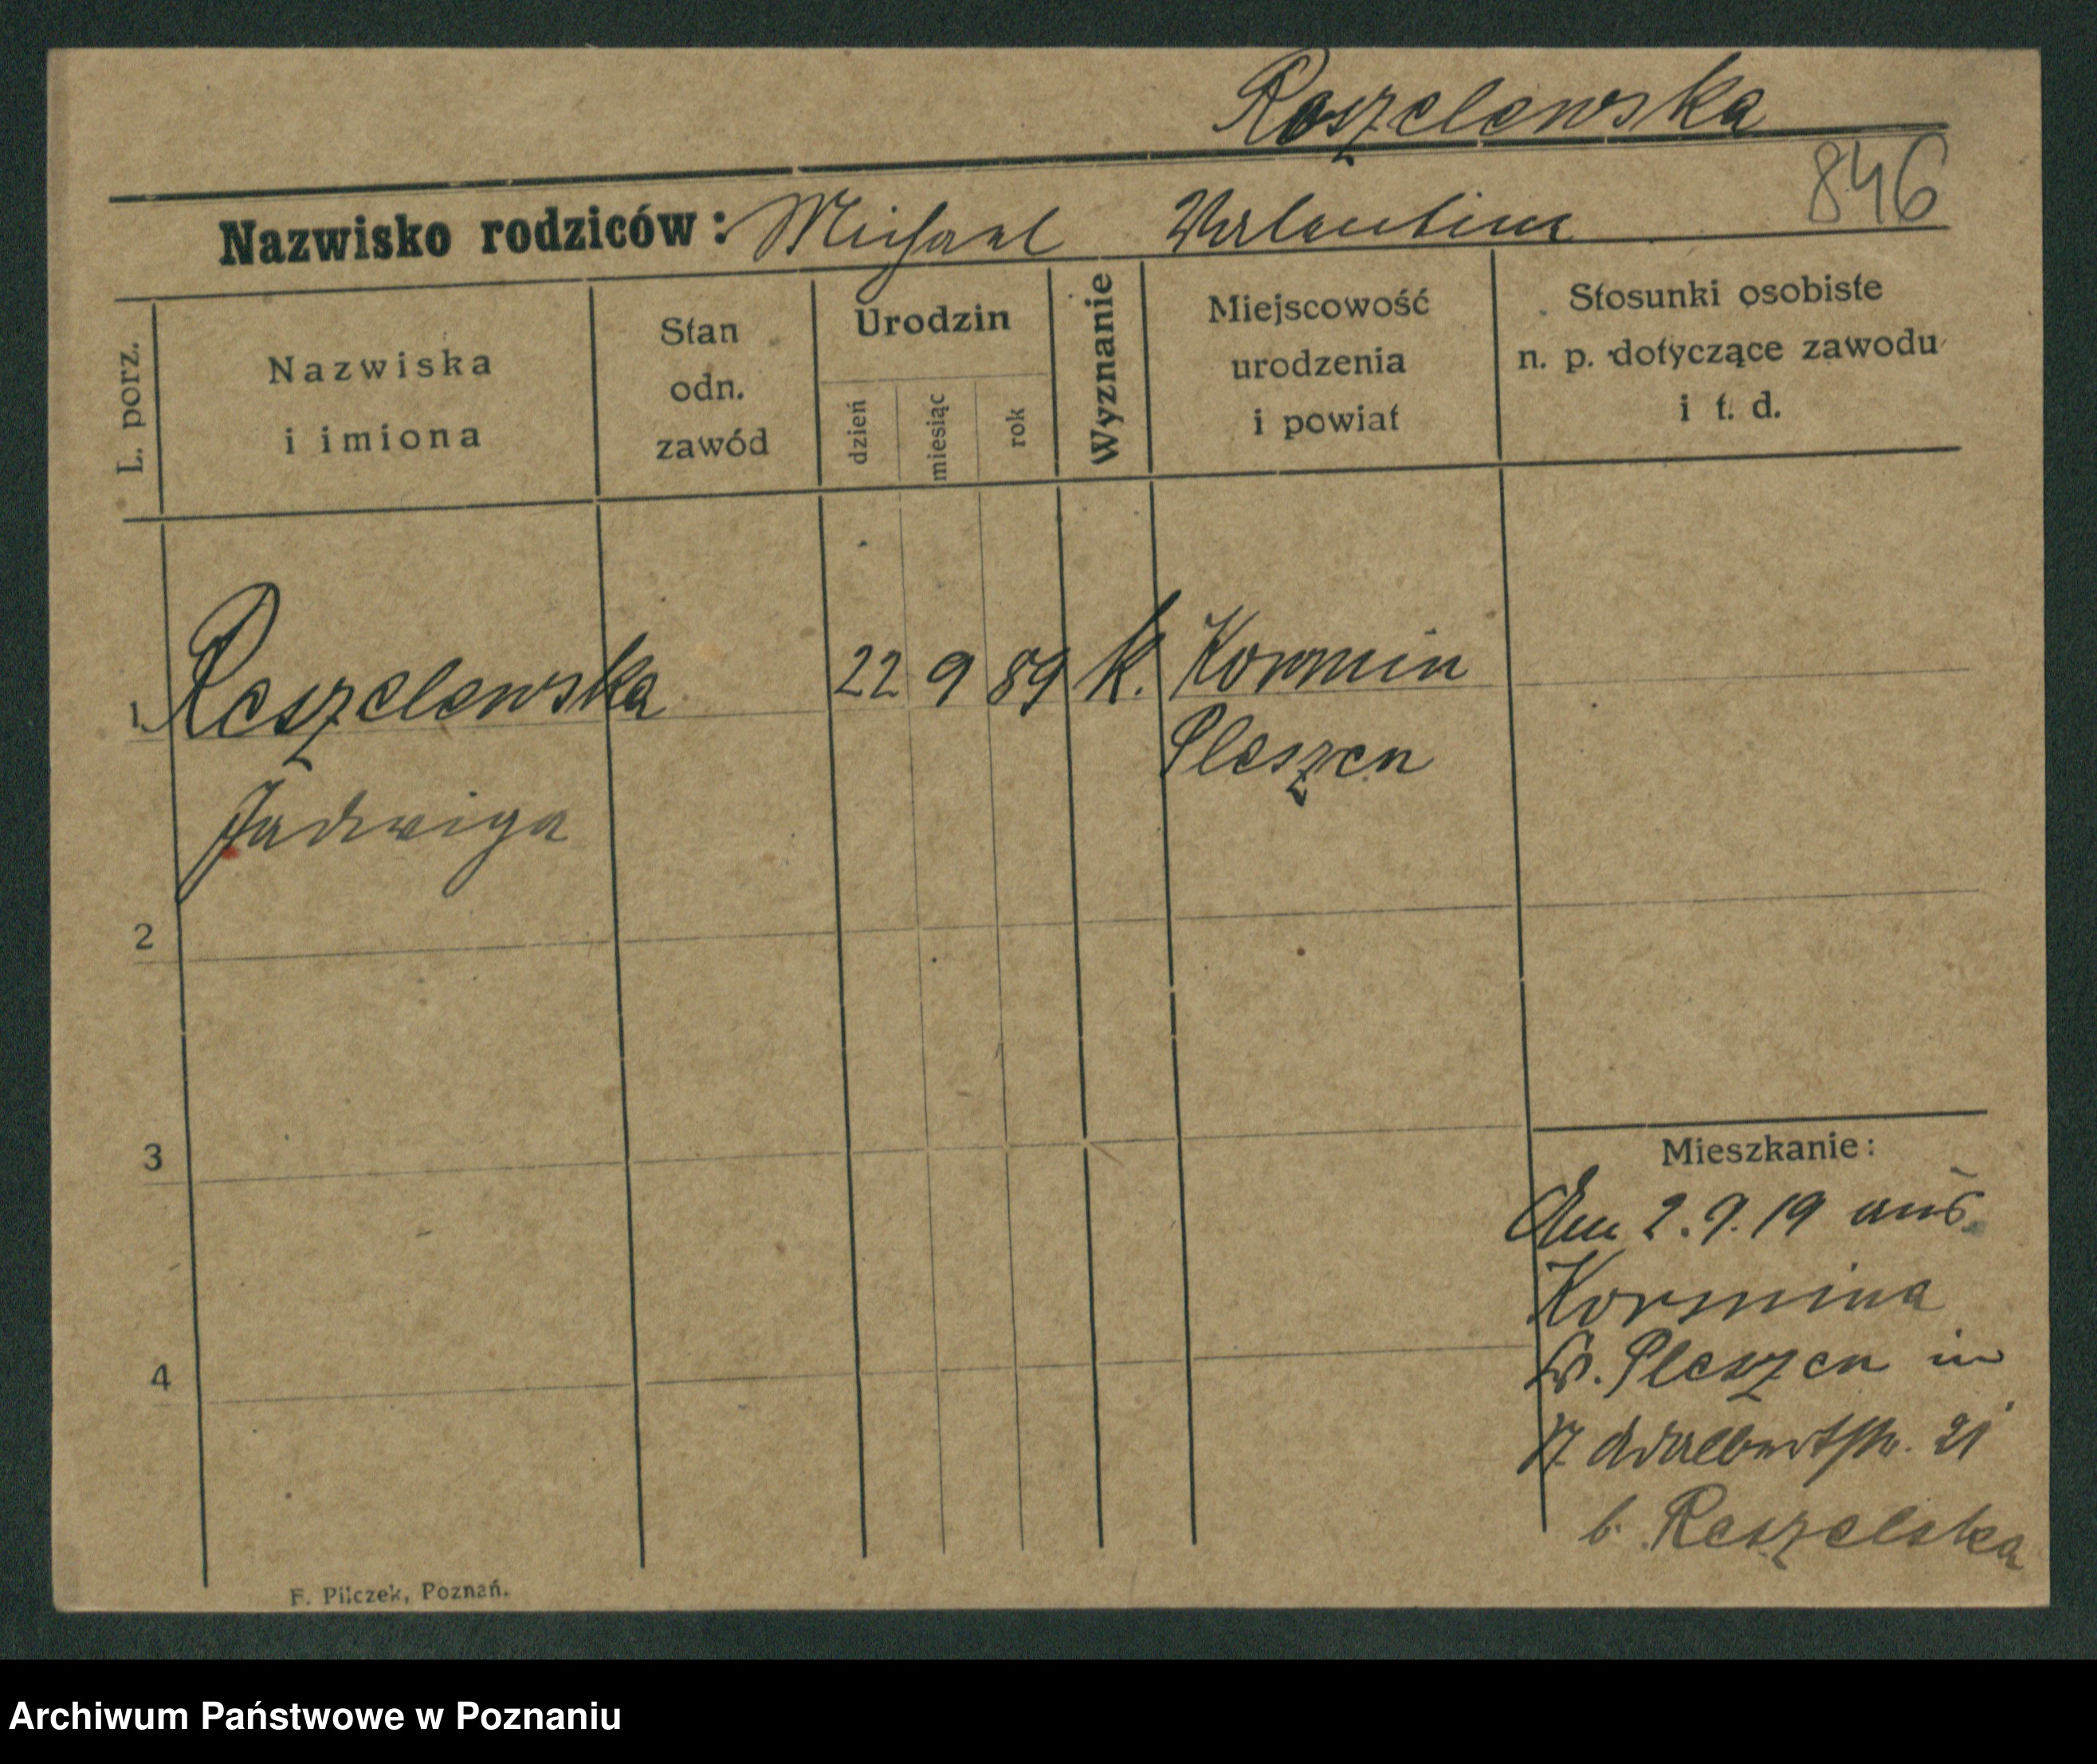 Roszelewska
846
Nazwisko rodziców: Michael Valentina
L. porz.
Nazwiska
i imiona
Stan
odn.
zawód
Urodzin
dzień
miesiąc
rok
Wyznanie
Miejscowość
urodzenia
i powiat
Stosunki osobiste
n. p. dotyczące zawodu
i t. d.
1 Reszelewska 22 9 89 k. Kormin
Pleszen
Jadwiga
2
3
4
Mieszkanie:
Am 2.9.19 aus
Kormina
Pleszen in
Adalbertstr. 21
b. Reszelska
F. Pilczek, Poznań.
Archiwum Państwowe w Poznaniu